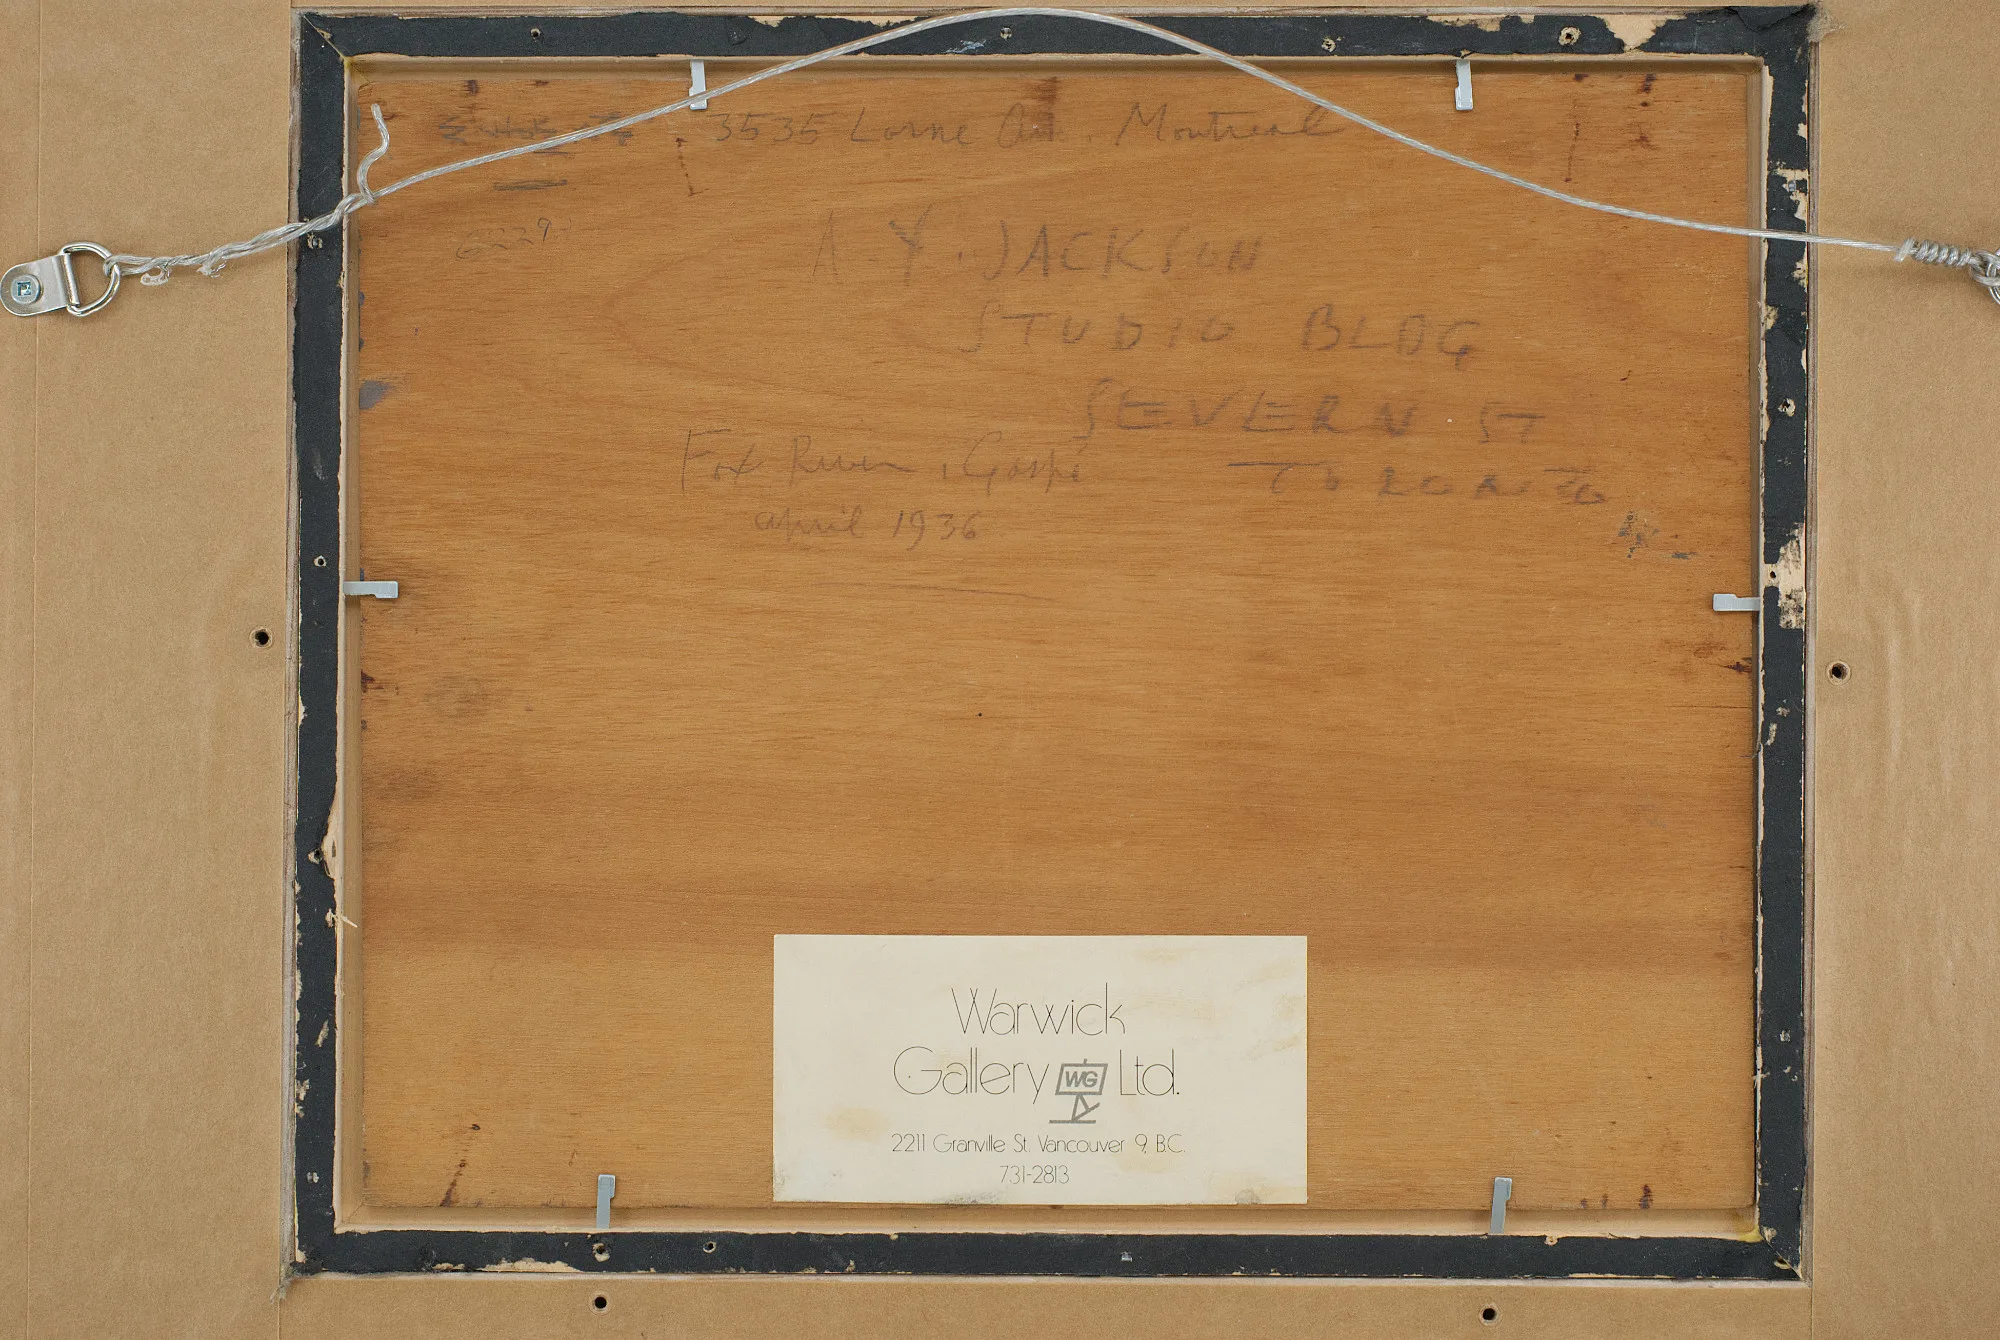 3535 Lorne Av. Montreal
6229
A Y. JACKSON
STUDIO BLDG
SEVERN ST
TORONTO
Fox River, Gaspé
april 1936
Warwick
Gallery WG Ltd.
2211 Granville St. Vancouver 9, B.C.
731-2813